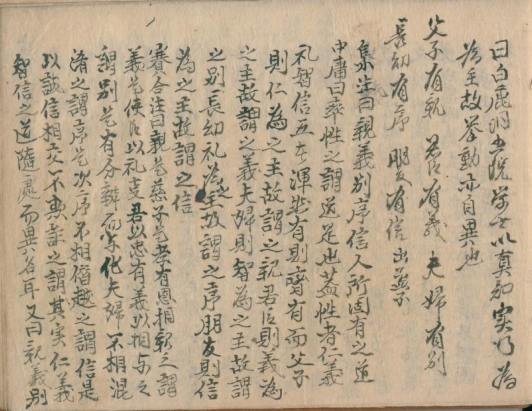 曰白鹿洞书院学者以真知実行為
為主故挙動亦自異也
父子有親 君臣有義 夫婦有別
長幼有序 朋友有信 出孟子
集注曰親義別序信人所固有之道
中庸曰率性之謂道是也蓋性者仁義
礼智信五者渾然有則齊有而父子
則仁為之主故謂之親君臣則義為
之主故謂之義夫婦則智為之主故謂
之別長幼礼為之主故謂之序朋友則信
為之主故謂之信
合注曰親是慈子是孝有恩相親之謂
義是使臣以礼事君以忠有義以相与之
謂別是有分辨而夫婦一不相混
淆之謂序是次序不相僭越之謂信是
以誠信相交一不欺詐之謂其実仁義
智信之道随處而異名耳又曰親義別